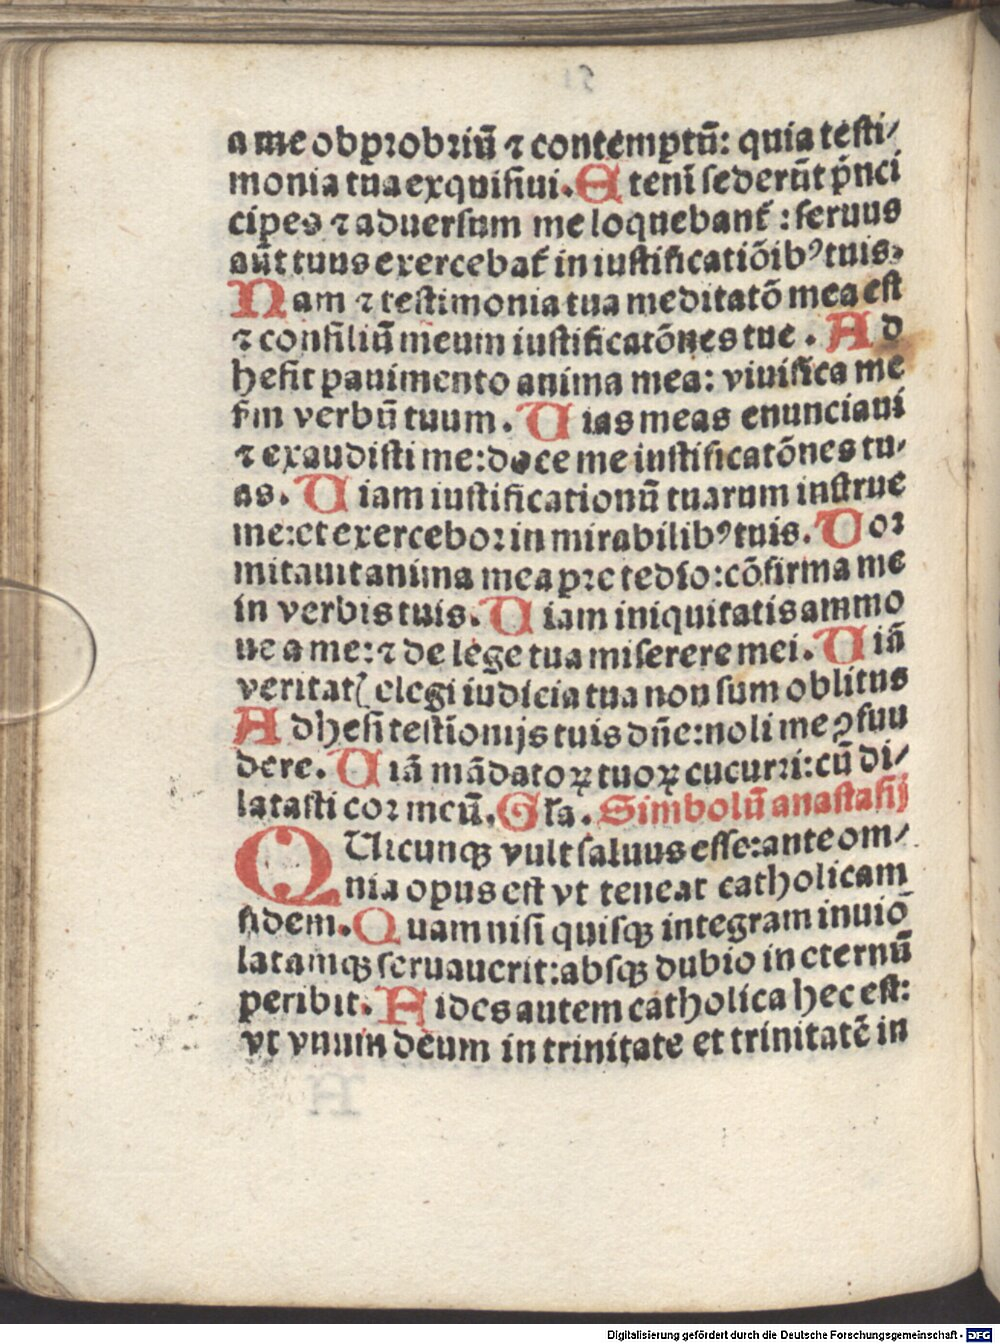 a me obprobriū ⁊ contemptū: quia testi⸗
monia tua exquisiui. Etenī sederūt pn̄ci
cipes ⁊ aduersum me loquebant᷑: seruus
aūt tuus exercebat᷑ in iustificatiōibꝰ tuis.
Nam ⁊ testimonia tua meditatō mea est
⁊ consiliū meum iustificatōnes tue. Ad
hesit pauimento anima mea: viuifica me
ẜm verbū tuum. Uias meas enunciaui
⁊ exaudisti me: doce me iustificatōnes tu⸗
as. Uiam iustificationū tuarum instrue
me: et exercebor in mirabilibꝰ tuis. Dor
mitauit anima mea pre tedio: cōfirma me
in verbis tuis. Uiam iniquitatis ammo
ue a me: ⁊ de lege tua miserere mei. Uiā
veritatꝭ elegi iudicia tua non sum oblitus
Adhesi testīonijs tuis dn̄e: noli me ꝯfun
dere. Uiā mādatoꝝ tuoꝝ cucurri: cū di⸗
latasti cor meū. Gła. Simbolū anastasij
QUicunqꝫ vult saluus esse: ante om⸗
nia opus est vt teneat catholicam
fidem. Quam nisi quisqꝫ integram inuio
latamqꝫ seruauerit: absqꝫ dubio in eternū
peribit. Fides autem catholica hec est:
vt vnum deum in trinitate et trinitatē in
Digitalisierung gefördert durch die Deutsche Forschungsgemeinschaft - DFG